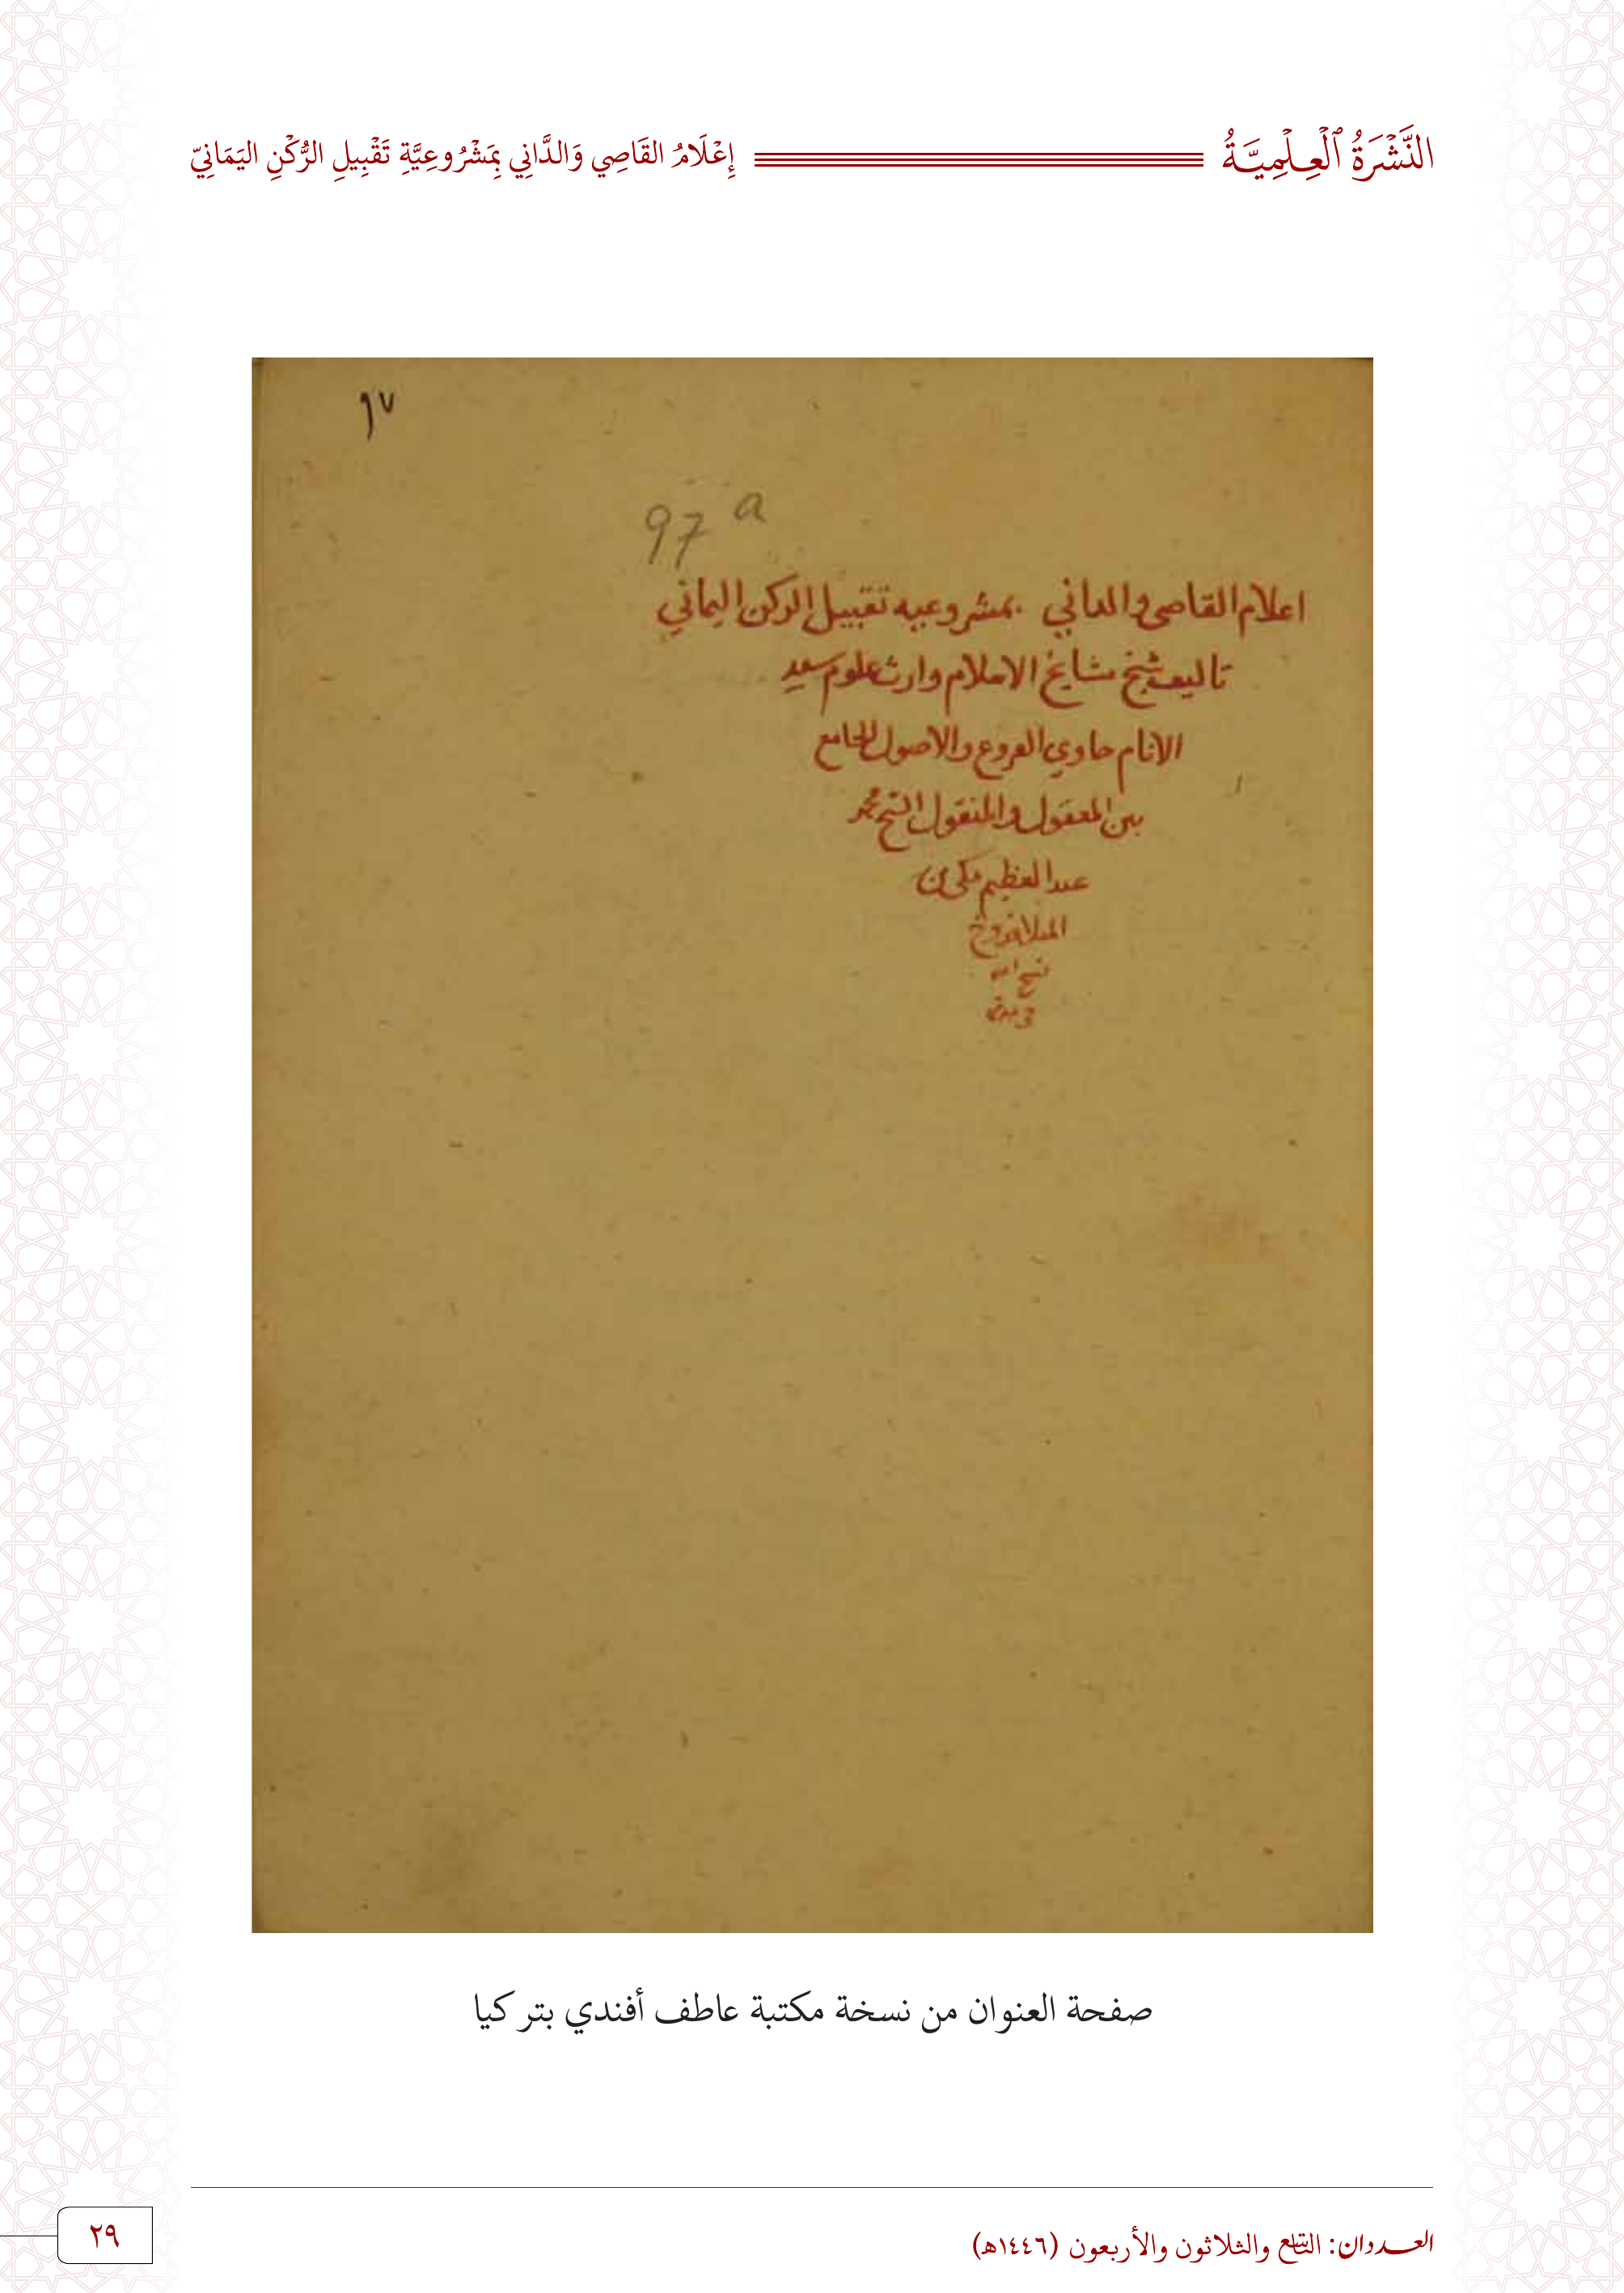 النَّشْرَةُ ٱلْعِلْمِيَّةُ
إِعْلَامُ القَاصِي وَالدَّانِي بِمَشْرُوعِيَّةِ تَقْبِيلِ الرُّكْنِ اليَمَانِيّ
٩٧
97 a
اعلام القاصي والداني بمشروعيه تقبيل الركن اليماني
تاليف شيخ مشايخ الاسلام وارث علوم سيد
الانام حاوي الفروع والاصول الجامع
بين المعقول والمنقول الشيخ محمد
عبد العظيم مكي بن
الملا فروخ
فسح الله
في مدته
صفحة العنوان من نسخة مكتبة عاطف أفندي بتركيا
العددان: التاسع والثلاثون والأربعون (١٤٤٦هـ)
٢٩